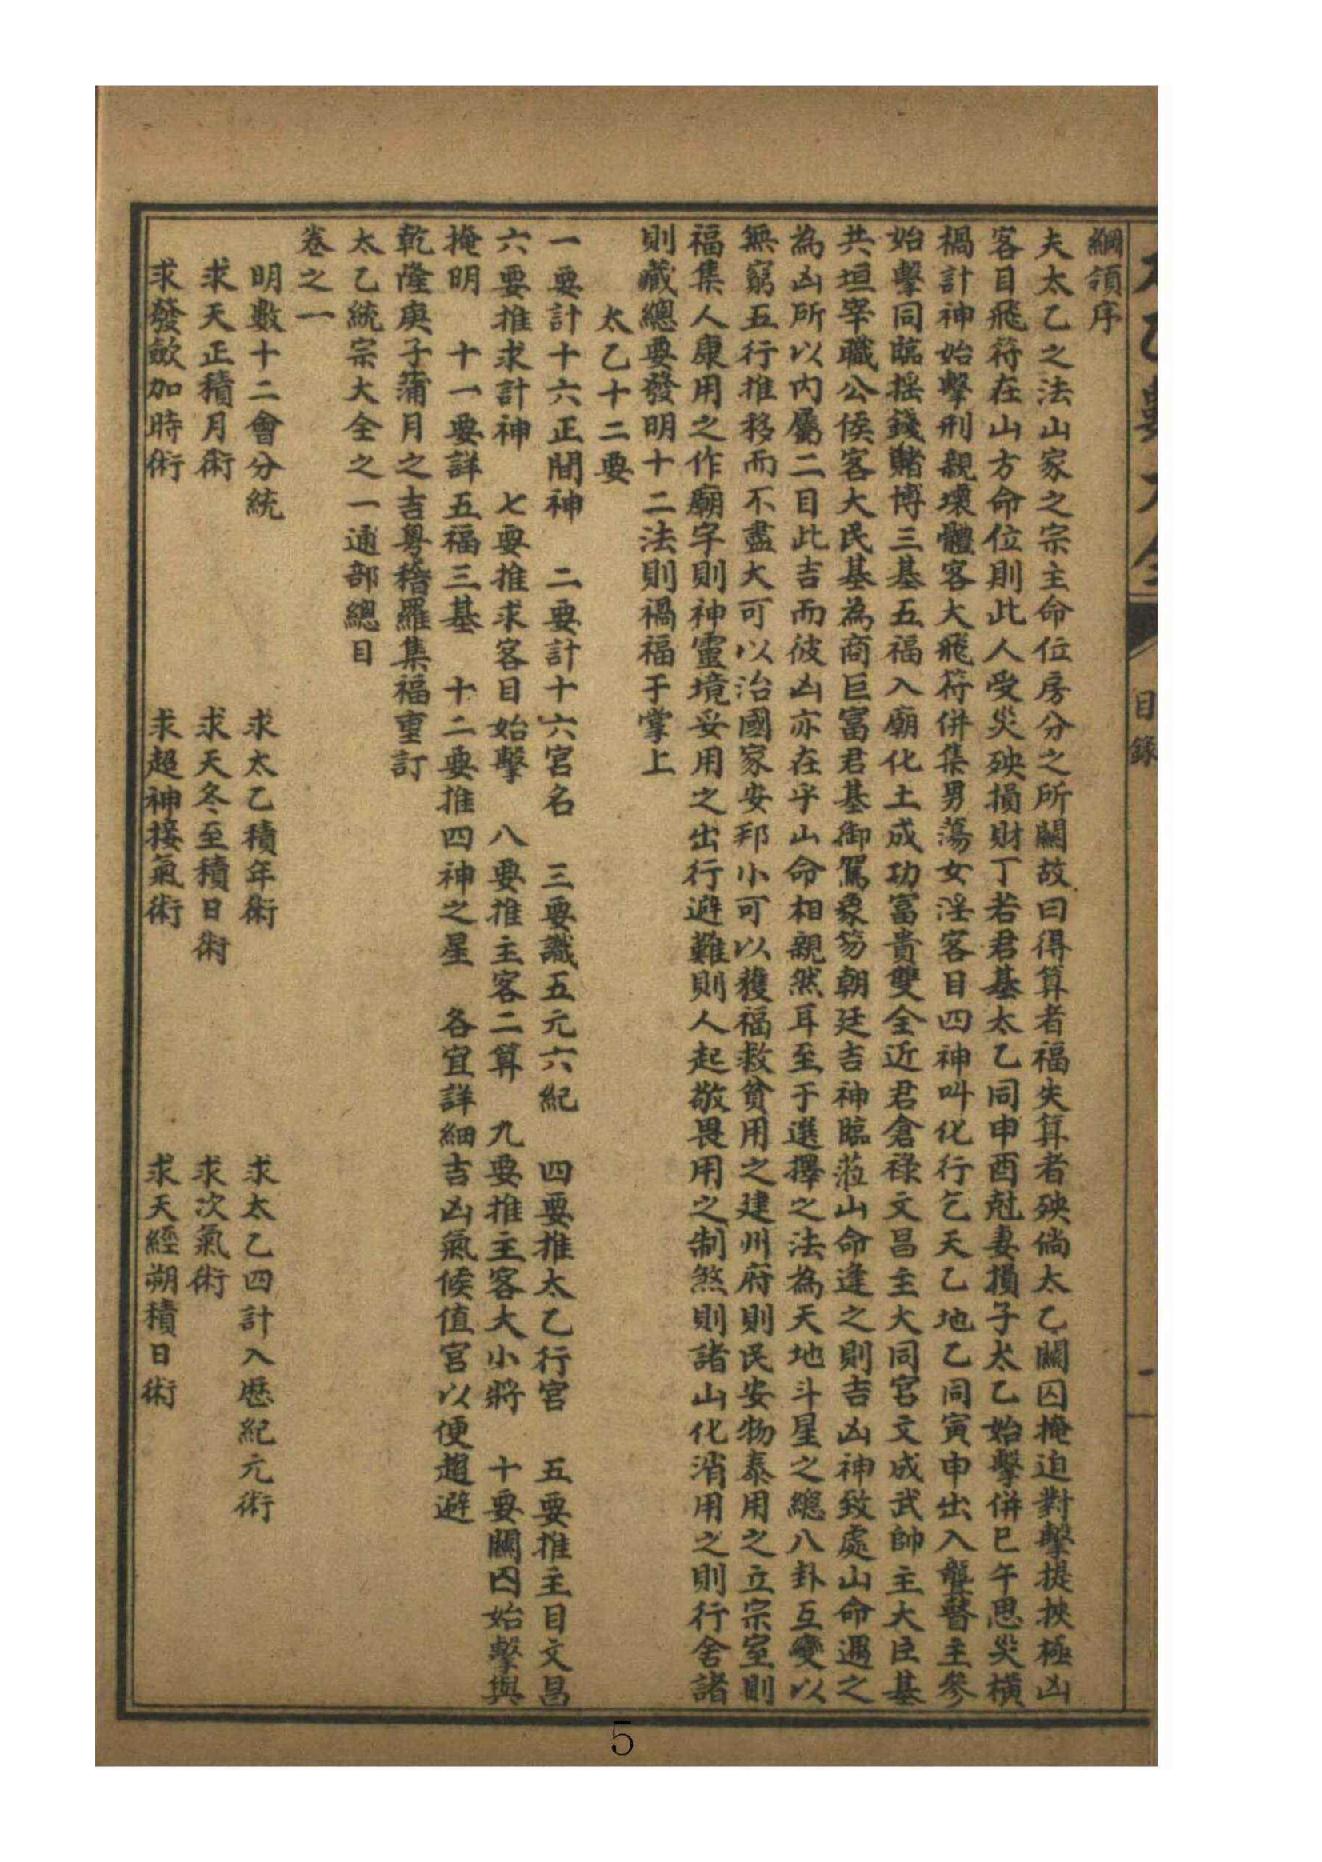 目錄
綱領序
夫太乙之法山家之宗主命位房分之所關故曰得算者福失算者殃倘太乙關囚掩迫對擊提挾極凶
客目飛符在山方命位則此人受災殃損財丁若君基太乙同申酉尅妻損子太乙始擊併巳午思災橫
禍計神始擊刑親壞體客大飛符併集男蕩女淫客目四神叫化行乞天乙地乙同寅申出入聾瞽主參
始擊同臨搖錢賭博三基五福入廟化土成功富貴雙全近君倉祿文昌主大同宮文成武帥主大臣基
共垣宰職公侯客大民基為商巨富君基御駕象笏朝廷吉神臨蒞山命逢之則吉凶神致處山命遇之
為凶所以內屬二目此吉而彼凶亦在乎山命相親然耳至于選擇之法為天地斗星之總八卦互變以
無窮五行推移而不盡大可以治國家安邦小可以獲福救貧用之建州府則民安物泰用之立宗室則
福集人康用之作廟宇則神靈境妥用之出行避難則人起敬畏用之制煞則諸山化消用之則行舍諸
則藏總要發明十二法則禍福于掌上
太乙十二要
一要計十六正間神 二要計十六宮名 三要識五元六紀 四要推太乙行宮 五要推主目文昌
六要推求計神 七要推求客目始擊 八要推主客二算 九要推主客大小將 十要關囚始擊與
掩明 十一要詳五福三基 十二要推四神之星 各宜詳細吉凶氣候值宮以便趨避
乾隆庚子蒲月之吉粵嵇羅集福重訂
太乙統宗大全之一通部總目
卷之一
明數十二會分統 求太乙積年術 求太乙四計入歷紀元術
求天正積月術 求天冬至積日術 求次氣術
求發斂加時術 求超神接氣術 求天經朔積日術
5